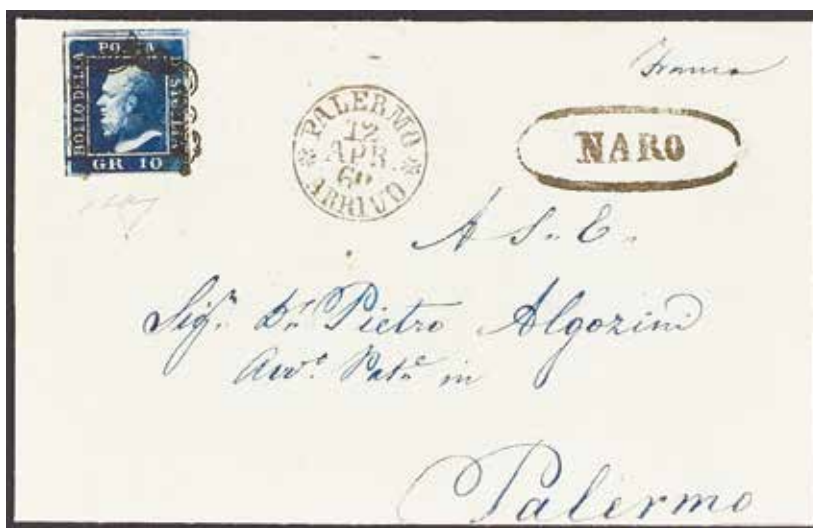 POSTA
BOLLO DELLA
DI SICILIA
GR 10
PALERMO
12
APR
60
ARRIVO
Franca
NARO
A S. E.
Sigr. Dn. Pietro Algozini
Avvo. Pate in
Palermo